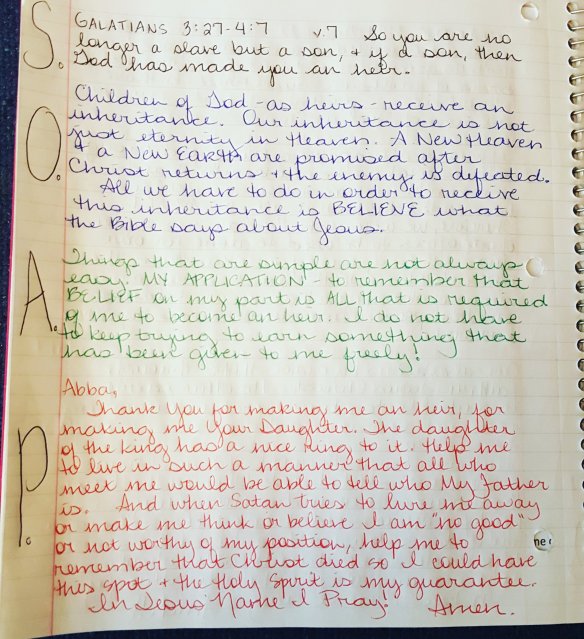 S. GALATIANS 3:27-4:7 v.7 So you are no
longer a slave but a son, + if a son, then
God has made you an heir.
O. Children of God - as heirs - receive an
inheritance. Our inheritance is not
just eternity in Heaven. A New Heaven
+ a New Earth are promised after
Christ returns + the enemy is defeated.
All we have to do in order to receive
this inheritance is BELIEVE what
the Bible says about Jesus.
A. Things that are simple are not always
easy. MY APPLICATION - to remember that
BELIEF on my part is ALL that is required
of me to become an heir. I do not have
to keep trying to earn something that
has been given to me freely!
P. Abba,
Thank You for making me an heir, for
making me Your Daughter. The daughter
of the King has a nice ring to it. Help me
to live in such a manner that all who
meet me would be able to tell who My Father
is. And when Satan tries to lure me away
or make me think or believe I am "no good"
or not worthy of my position, help me to
remember that Christ died so I could have
this spot + the Holy Spirit is my guarantee.
In Jesus Name I Pray! Amen.